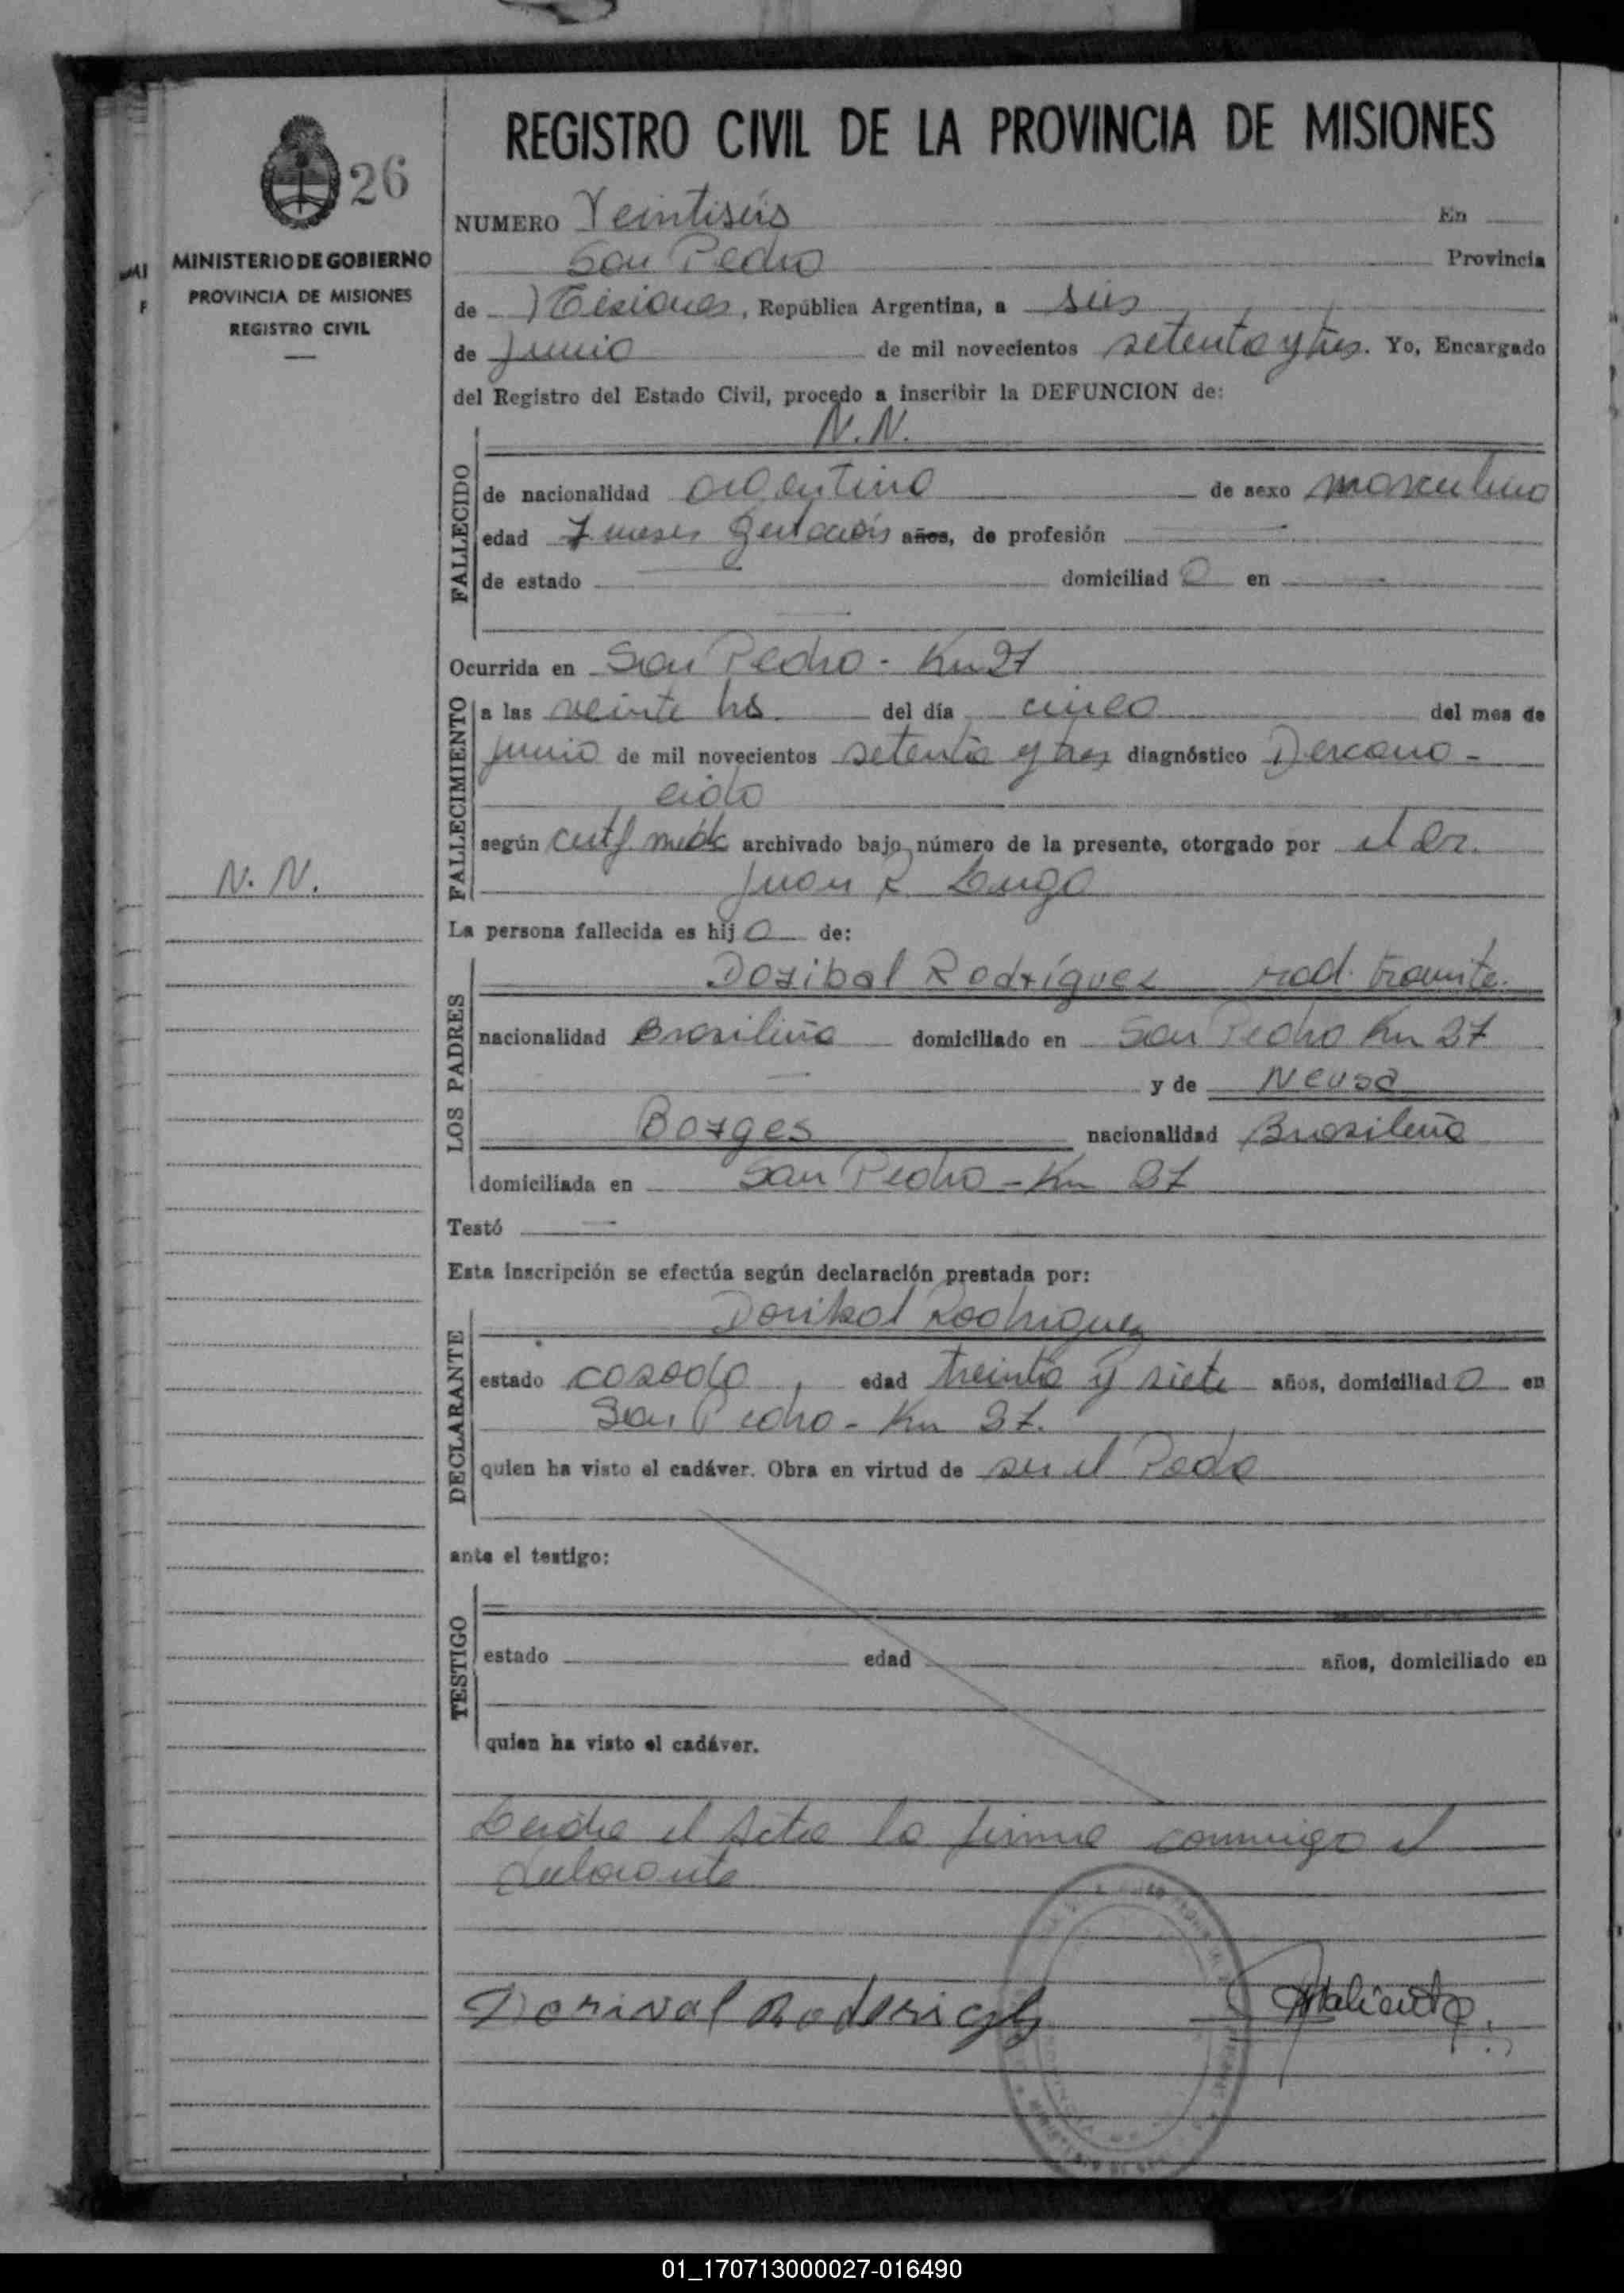 REGISTRO CIVIL DE LA PROVINCIA DE MISIONES
26
MINISTERIO DE GOBIERNO
PROVINCIA DE MISIONES
REGISTRO CIVIL
NUMERO Veintiseis En
San Pedro Provincia
de Misiones, República Argentina, a seis
de Junio de mil novecientos setenta y tres. Yo, Encargado
del Registro del Estado Civil, procedo a inscribir la DEFUNCION de:
N.N.
FALLECIDO
de nacionalidad argentina de sexo masculino
edad 7 meses gestación años, de profesión
de estado domiciliad o en
Ocurrida en San Pedro - Km 27
FALLECIMIENTO
a las veinte hs. del día cinco del mes de
junio de mil novecientos setenta y tres diagnóstico Descono-
cido
según certf. medic archivado bajo número de la presente, otorgado por el Dr.
Juan R. Lugo
N. N.
La persona fallecida es hij o de:
LOS PADRES
Doribal Rodríguez rad. tramite.
nacionalidad Brasileña domiciliado en San Pedro Km 27
y de Neusa
Borges nacionalidad Brasileña
domiciliada en San Pedro - Km 27
Testó
Esta inscripción se efectúa según declaración prestada por:
DECLARANTE
Doribal Rodriguez
estado casado, edad treinta y siete años, domiciliad o en
San Pedro - Km 27.
quien ha visto el cadáver. Obra en virtud de ser el Padre
ante el testigo:
TESTIGO
estado edad años, domiciliado en
quien ha visto el cadáver.
Leida el Acta la firma conmigo el
declarante
Dorival
01_170713000027-016490